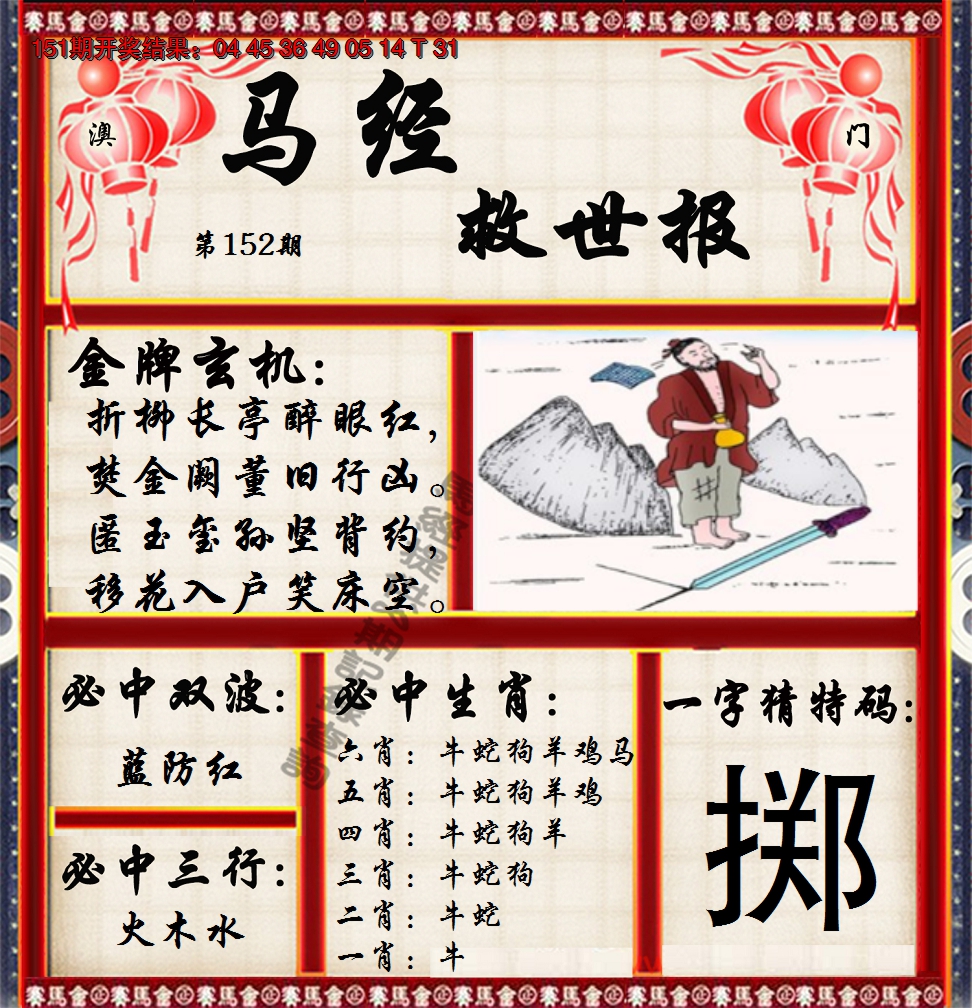 151期开奖结果：04 45 36 49 05 14 T 31
澳
门
马经
救世报
第152期
金牌玄机：
折柳长亭醉眼红，
焚金阙董旧行凶。
匿玉玺孙坚背约，
移花入户笑床空。
必中双波：
蓝防红
必中三行：
火木水
必中生肖：
六肖：牛蛇狗羊鸡马
五肖：牛蛇狗羊鸡
四肖：牛蛇狗羊
三肖：牛蛇狗
二肖：牛蛇
一肖：牛
一字猜特码：
掷